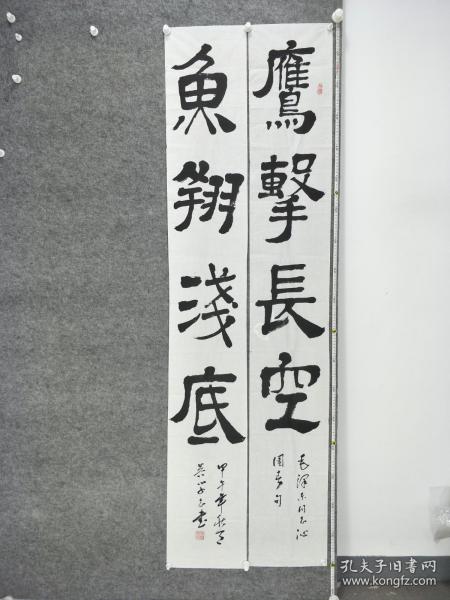 鷹擊長空
毛澤东同志沁
園春句
魚翔淺底
甲午年秋月
書
孔夫子旧书网
www.kongfz.com